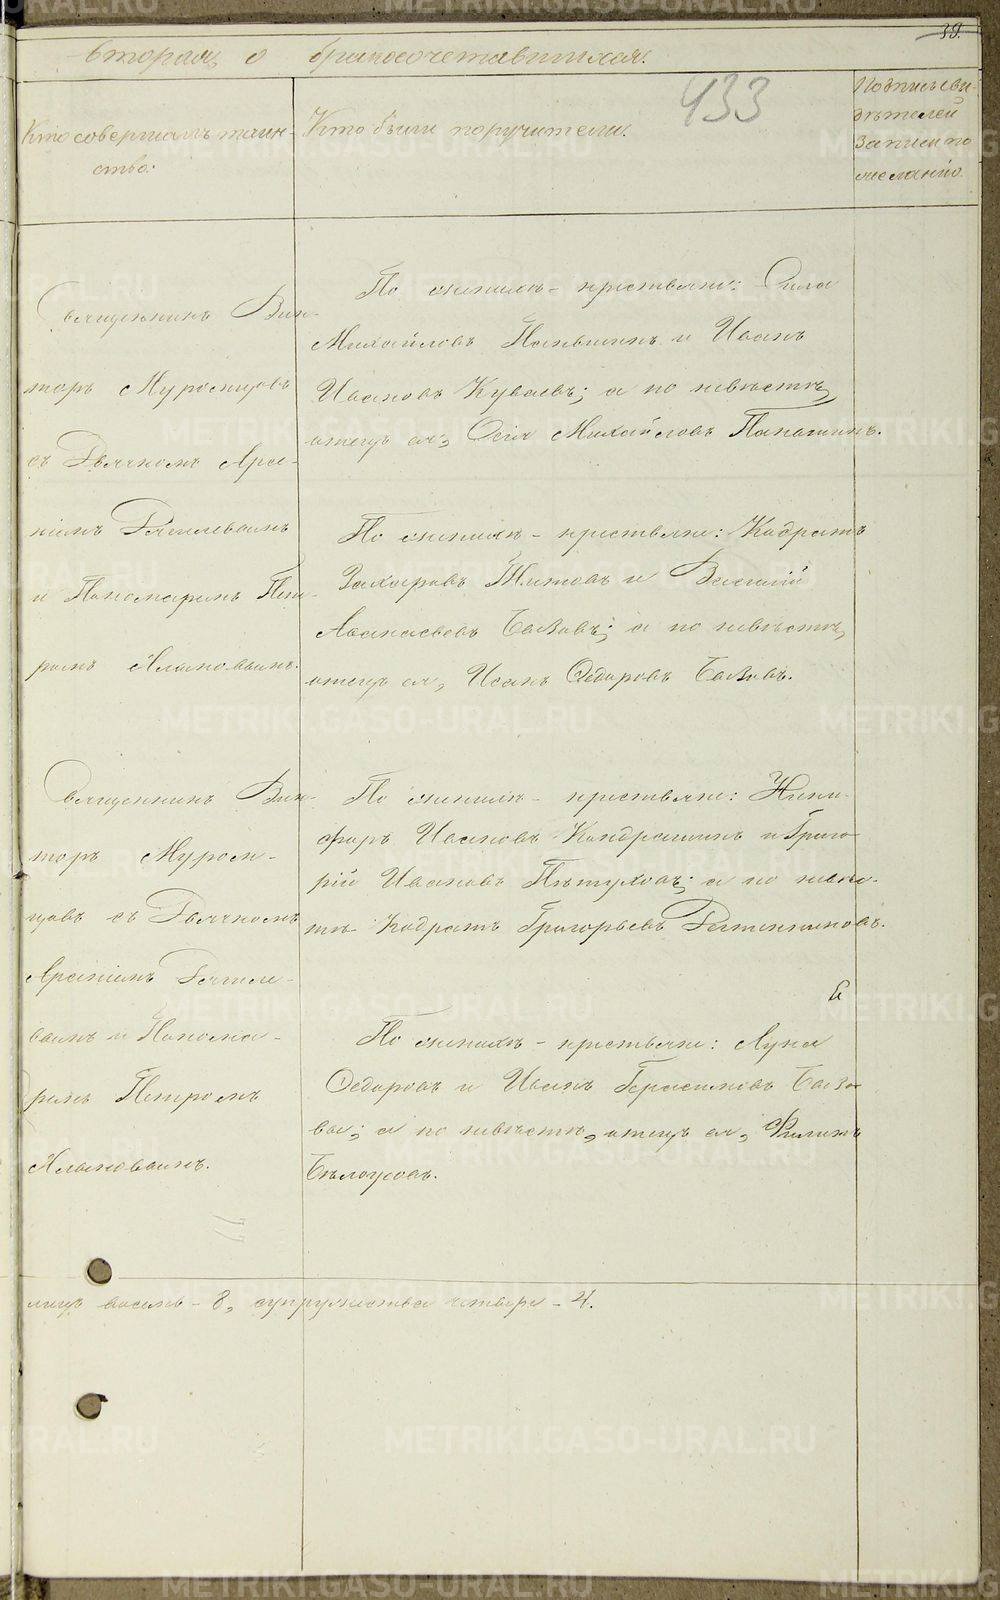 39.
вторая, о бракосочетавшихся.
433
Кто совершалъ таин-
ство.
Кто были поручители.
Подписи сви-
дѣтелей
записи по
желанію.
Священникъ Вик-
торъ Муромцовъ
съ Дьячкомъ Арсе-
ніемъ
и Пономаремъ Пет-
ромъ
По женихѣ - крестьяне: Сила
Михайловъ Паньшинъ и Иванъ
Ивановъ Куваевъ; а по невѣстѣ,
отецъ ея, Осія Михайловъ
По женихѣ - крестьяне: Кодратъ
Захаровъ Титовъ и Василій
Аѳанасьевъ Базовъ; а по невѣстѣ,
отецъ ея, Иванъ Ѳедоровъ Базовъ.
Священникъ Вик-
торъ Муром-
цовъ съ Дьячкомъ
Арсеніемъ
и Понома-
ремъ Петромъ
По женихѣ - крестьяне: Ники-
форъ Ивановъ Кондрашинъ и Григо-
рій Ивановъ Пѣтуховъ; а по невѣс-
тѣ Кодратъ Григорьевъ
По женихѣ - крестьяне: Лука
Ѳедоровъ и Иванъ Герасимовъ Базо-
вы; а по невѣстѣ, отецъ ея, Филипъ
Бѣлоусовъ.
лицъ восемь - 8, супружества четыре - 4.
METRIKI.GASO-URAL.RU